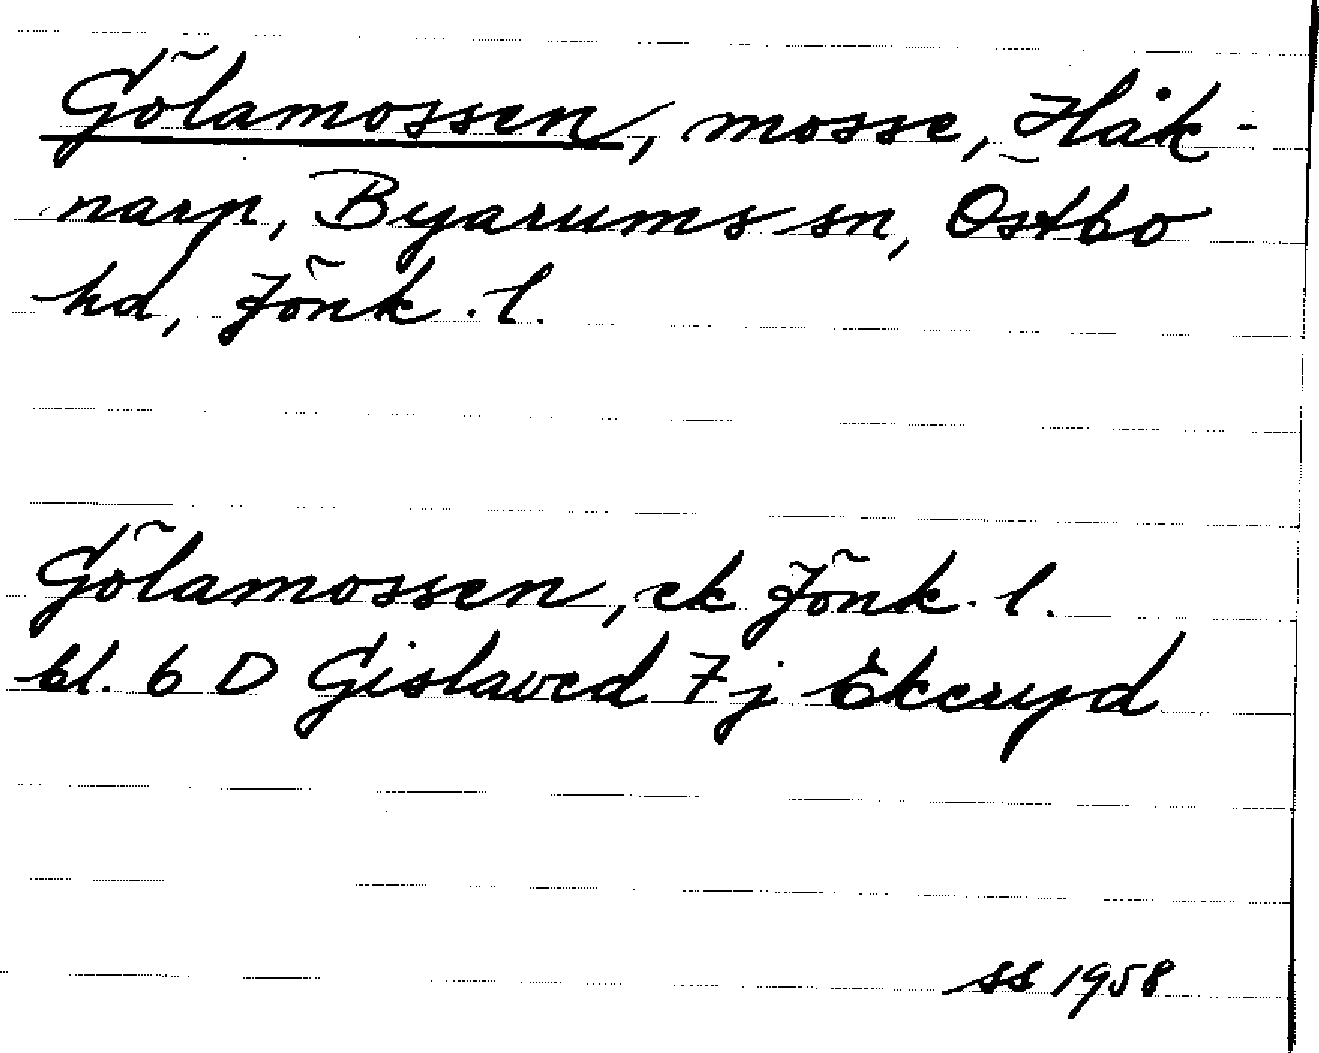 Gölamossen, mosse, Håk-
narp, Byarums sn, Östbo
hd, Jönk. l.
Gölamossen, ek Jönk. l.
bl. 6 D Gislaved 7 j Ekeryd
ss 1958